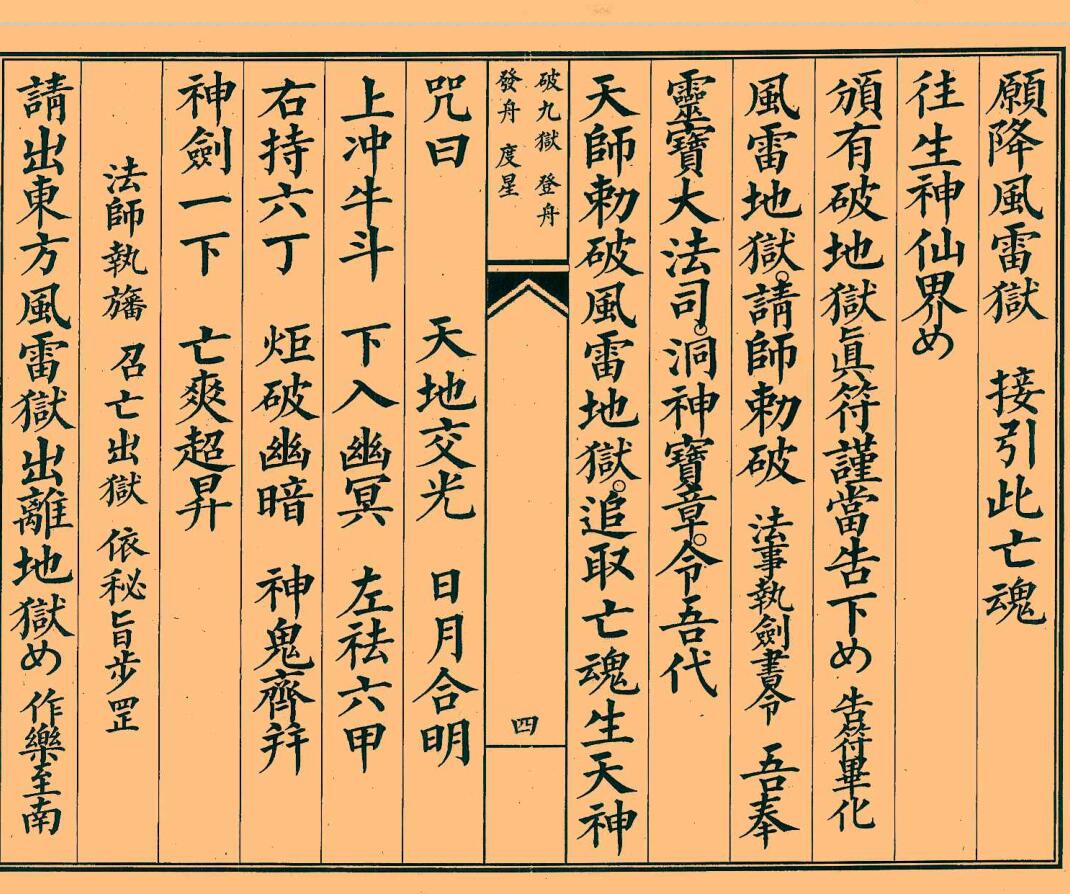 願降風雷獄　接引此亡魂
往生神仙界め
頒有破地獄眞符謹當告下め 告符畢化
風雷地獄。請師勅破 法事執劍書令 吾奉
靈寶大法司。洞神寶章。令吾代
天師勅破風雷地獄。追取亡魂生天神
破九獄 登舟
發舟 度星
四
咒曰　天地交光　日月合明
上冲牛斗　下入幽冥　左祛六甲
右持六丁　炬破幽暗　神鬼齊并
神劍一下　亡爽超昇
法師執旛 召亡出獄 依秘旨步罡
請出東方風雷獄出離地獄め 作樂至南